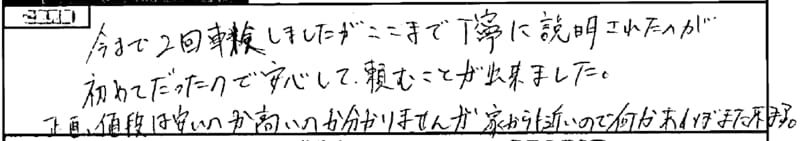 今まで2回車検しましたがここまで丁寧に説明されたのが
初めてだったので安心して、頼むことが出来ました。
正直、値段は安いのか高いのか分かりませんが家から近いので何かあればまた来ます。